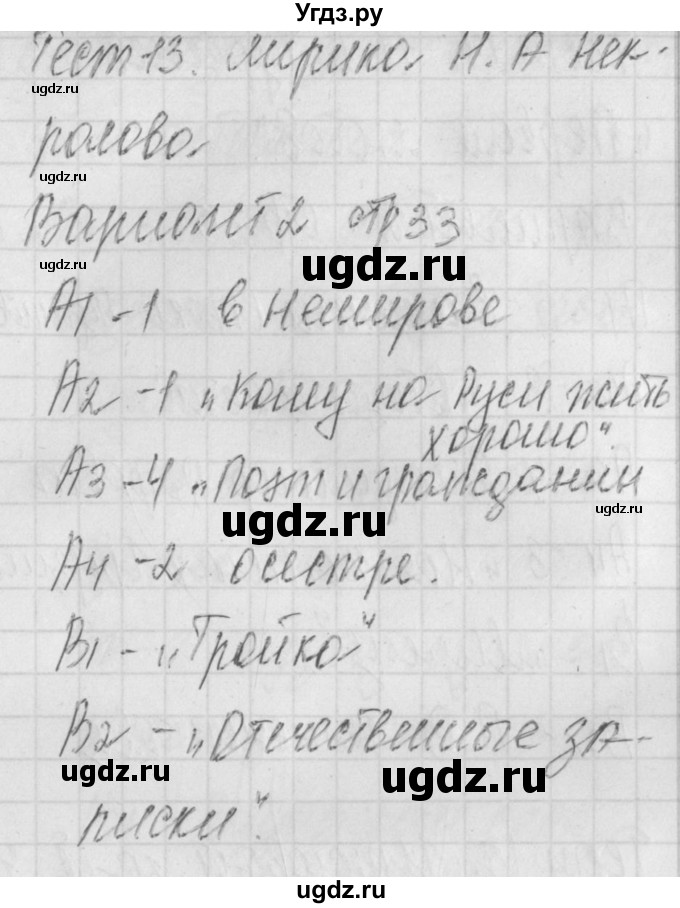 Угдз.ру
Тест 13. Лирика Н. А Нек-
ugdz.ru
расова
ugdz.ru
Вариант 2 стр 33
ugdz.ru
ugdz.ru
А1 - 1 в Немирове
А2 - 1 „Кому на Руси жить
хорошо".
А3 - 4 „Поэт и гражданин
ugdz.ru
ugdz.ru
А4 - 2 о сестре.
В1 - „Тройка"
В2 - „Отечественные за-
ugdz.ru
ugdz.ru
писки".
ugdz.ru